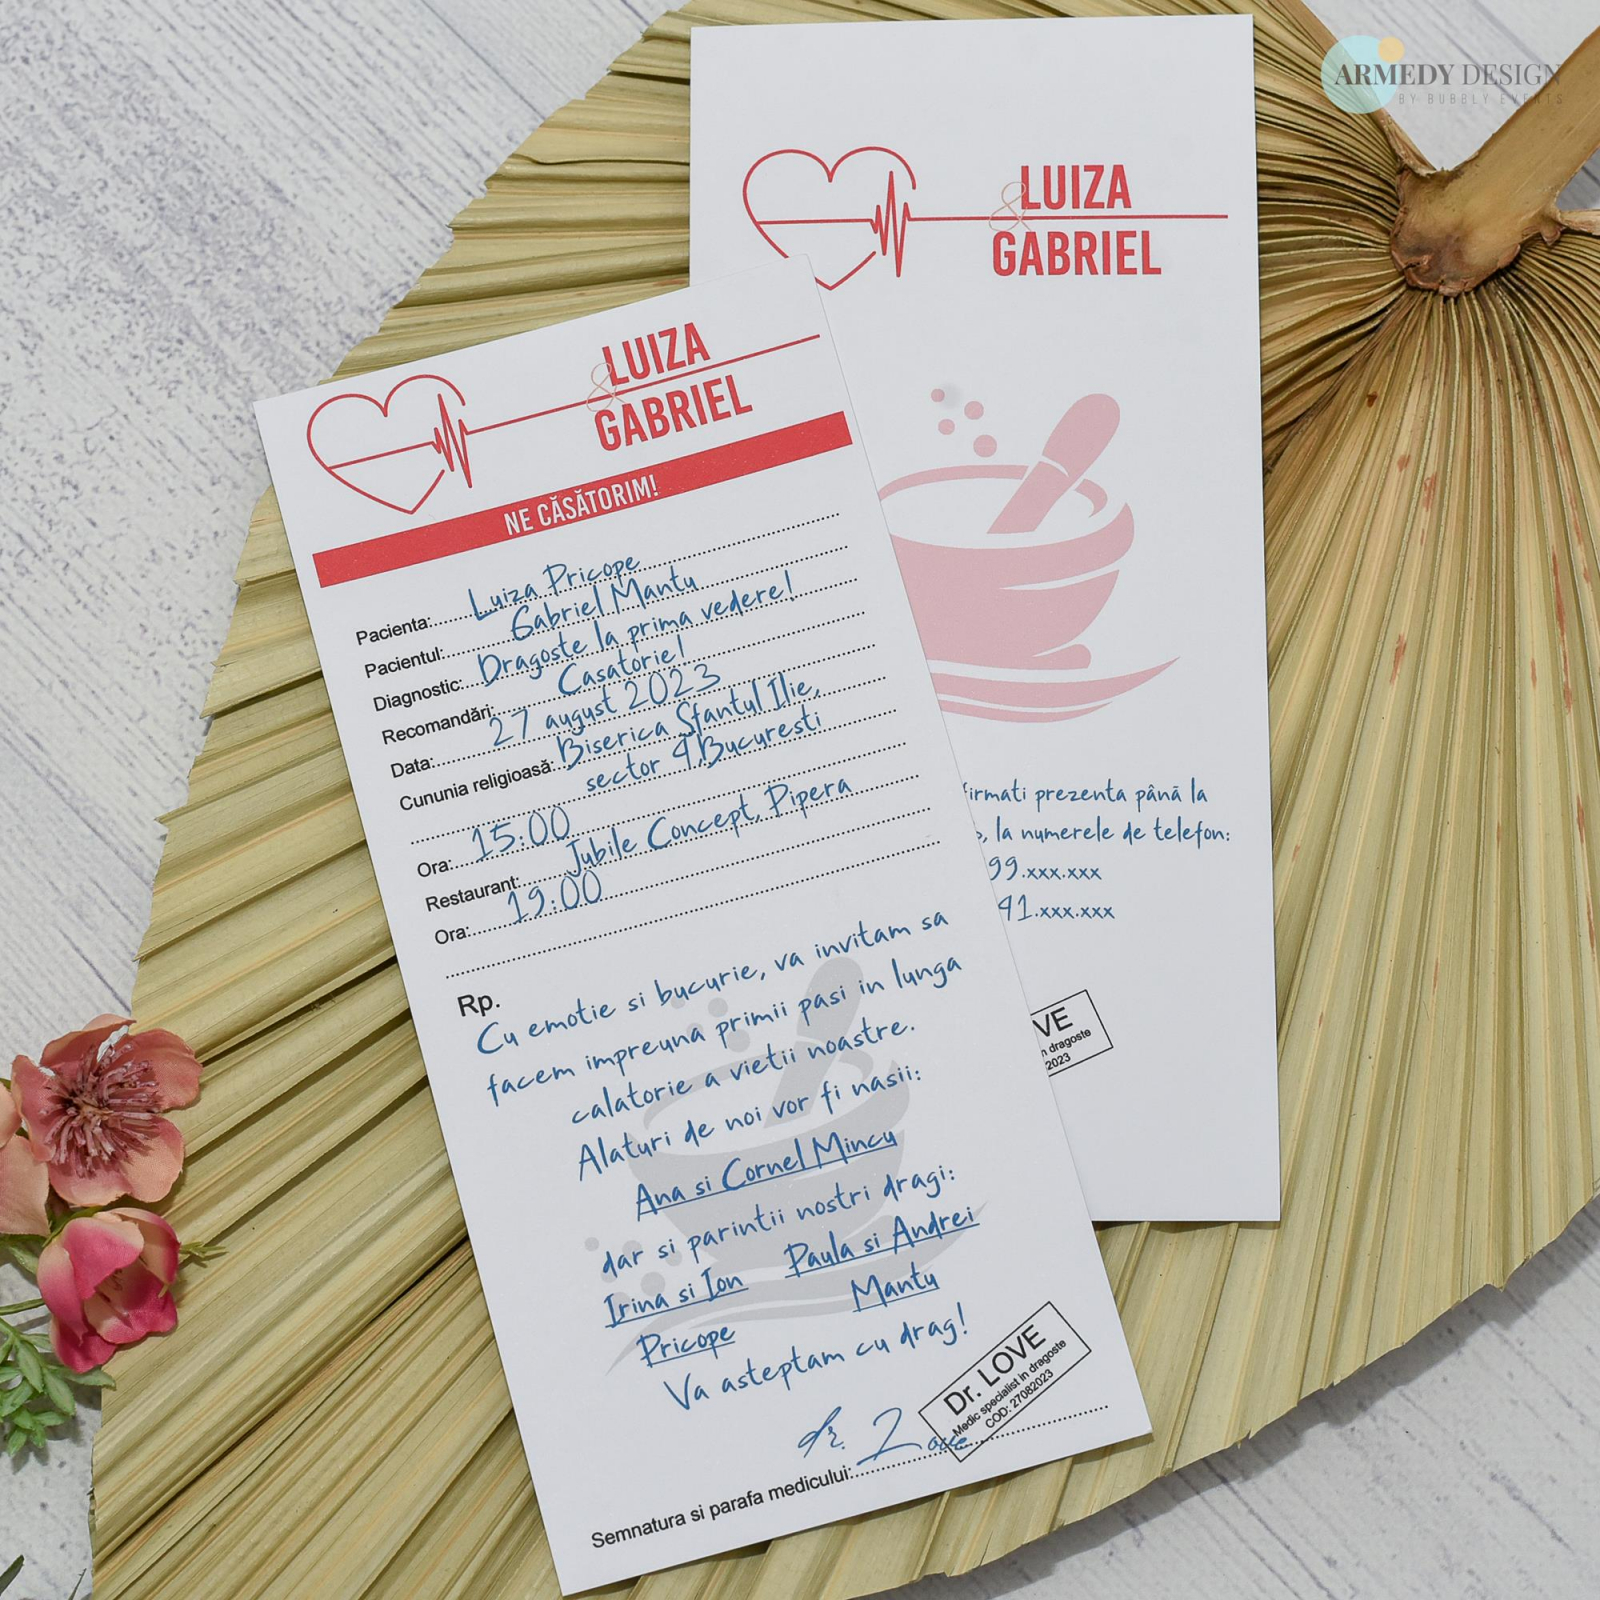 ARMEDY DESIGN
BY BUBBLY EVENTS
LUIZA
&
GABRIEL
LUIZA
&
GABRIEL
NE CĂSĂTORIM!
Pacienta: Luiza Pricope
Pacientul: Gabriel Mantu
Diagnostic: Dragoste la prima vedere!
Recomandări: Casatorie!
Data: 27 august 2023
Cununia religioasă: Biserica Sfantul Ilie,
sector 4, Bucuresti
Ora: 15:00
Restaurant: Jubile Concept, Pipera
Ora: 19:00
Rp.
Cu emotie si bucurie, va invitam sa
facem impreuna primii pasi in lunga
calatorie a vietii noastre.
Alaturi de noi vor fi nasii:
Ana si Cornel Mincu
dar si parintii nostri dragi:
Irina si Ion Pricope
Paula si Andrei Mantu
Va asteptam cu drag!
Dr. LOVE
Medic specialist in dragoste
COD: 27082023
Semnatura si parafa medicului:
prezenta până la
la numerele de telefon:
99.xxx.xxx
91.xxx.xxx
VE
dragoste
2023